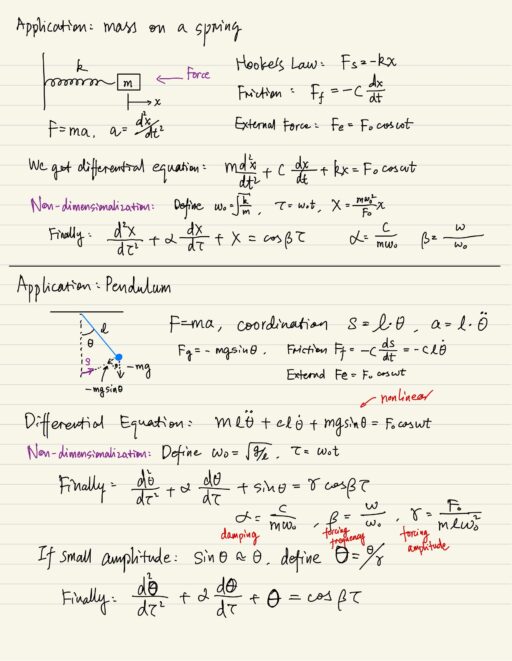 Application: mass on a spring
k
m
Force
x
Hooke's Law: Fs = -kx
Friction: F_f = -C dx/dt
F=ma, a= d²x/dt²
External Force: Fe = F₀cosωt
We get differential equation: m d²x/dt² + C dx/dt + kx = F₀cosωt
Non-dimensionalization: Define ω₀=√(k/m), τ=ω₀t, X= mω₀²/F₀ x
Finally: d²X/dτ² + α dX/dτ + X = cosβτ α= C/mω₀ β= ω/ω₀
Application: Pendulum
l
θ
S
-mg
-mgsinθ
F=ma, coordination S=l·θ, a=l·θ̈
Fg=-mgsinθ. Friction F_f=-C ds/dt =-clθ̇
External Fe=F₀cosωt
nonlinear
Differential Equation: mlθ̈ + clθ̇ + mgsinθ = F₀cosωt
Non-dimensionalization: Define ω₀=√(g/l), τ=ω₀t
Finally: d²θ/dτ² + α dθ/dτ + sinθ = γ cosβτ
α= C/mω₀, β= ω/ω₀, γ= F₀/mlω₀²
damping forcing frequency forcing amplitude
If small amplitude: sinθ≈θ, define Θ=θ/γ
Finally: d²Θ/dτ² + α dΘ/dτ + Θ = cosβτ